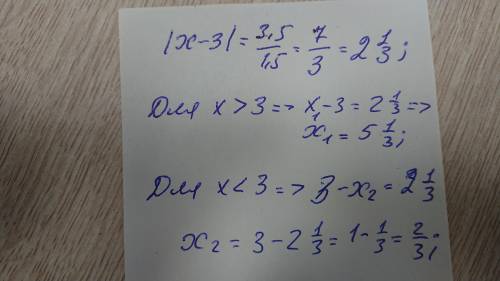 |x-3| = 3,5/1,5 = 7/3 = 2 1/3;
Для x > 3 => x₁-3 = 2 1/3 =>
x₁ = 5 1/3;
Для x < 3 => 3-x₂ = 2 1/3
x₂ = 3-2 1/3 = 1-1/3 = 2/3;